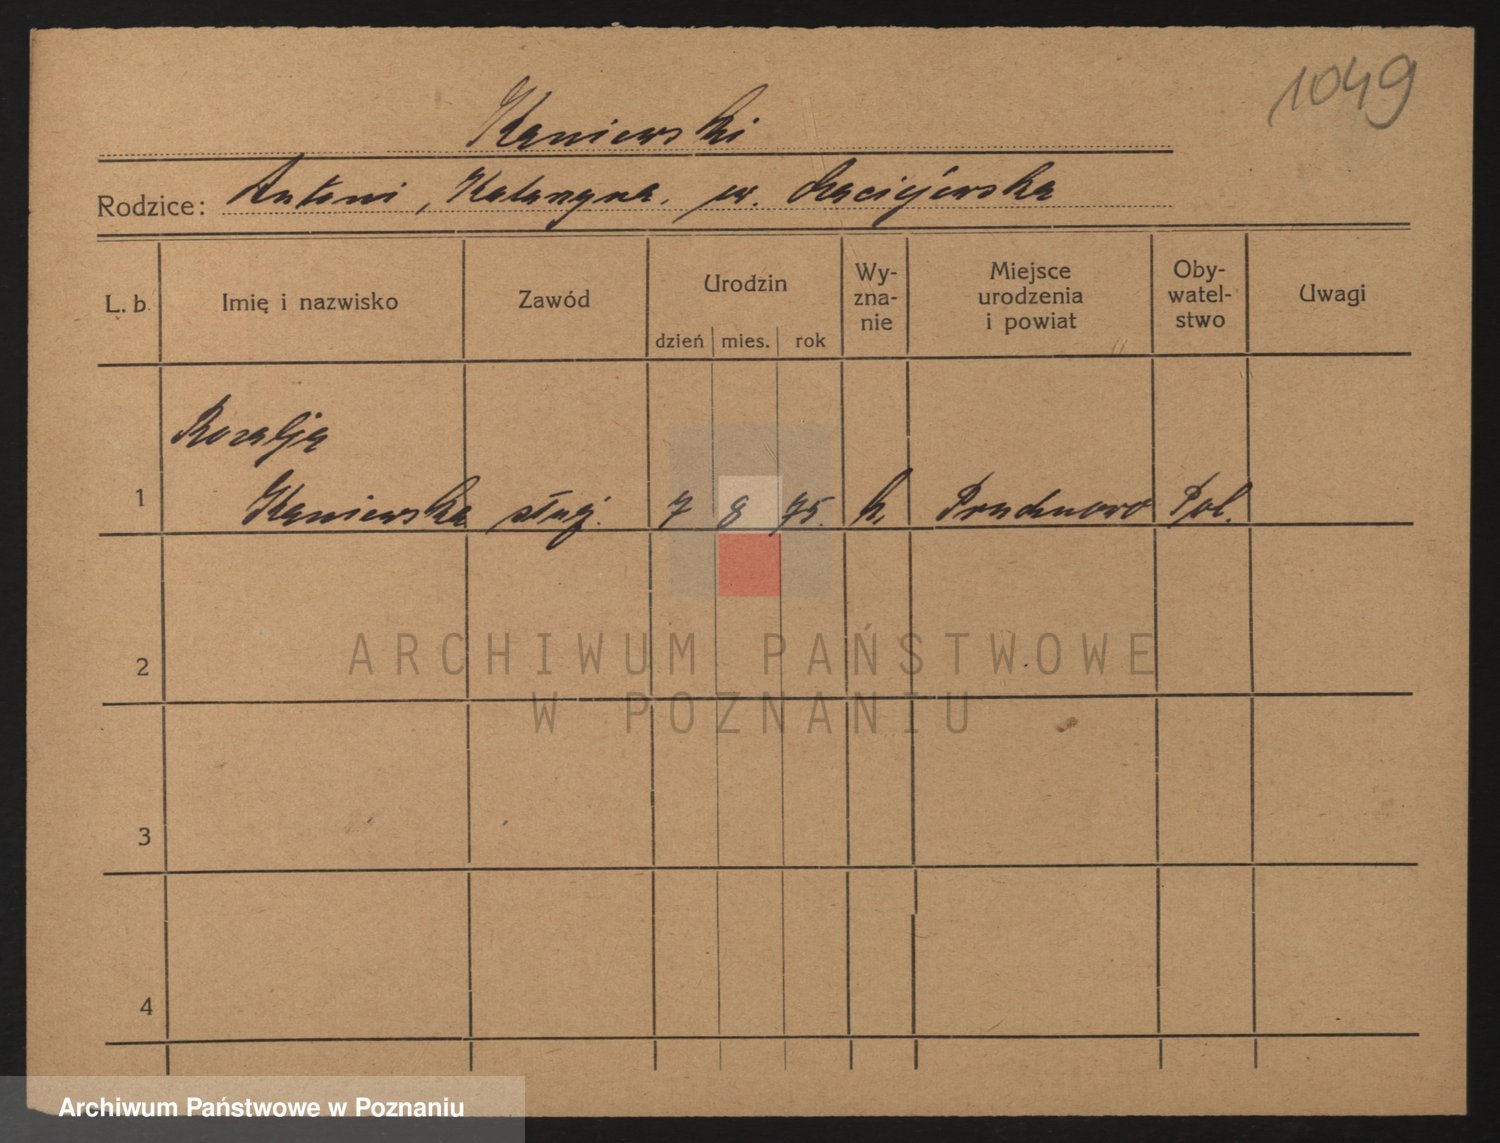 1049
Kaniewski
Rodzice: Antoni, Katarzyna, ur. Maciejewska
L. b. Imię i nazwisko Zawód Urodzin Wy-
zna-
nie Miejsce
urodzenia
i powiat Oby-
watel-
stwo Uwagi
dzień mies. rok
Rozalja
1 Kaniewska służ. 7 8 75. k. Pruchnowo Pol.
2
3
4
ARCHIWUM PAŃSTWOWE
W POZNANIU
Archiwum Państwowe w Poznaniu